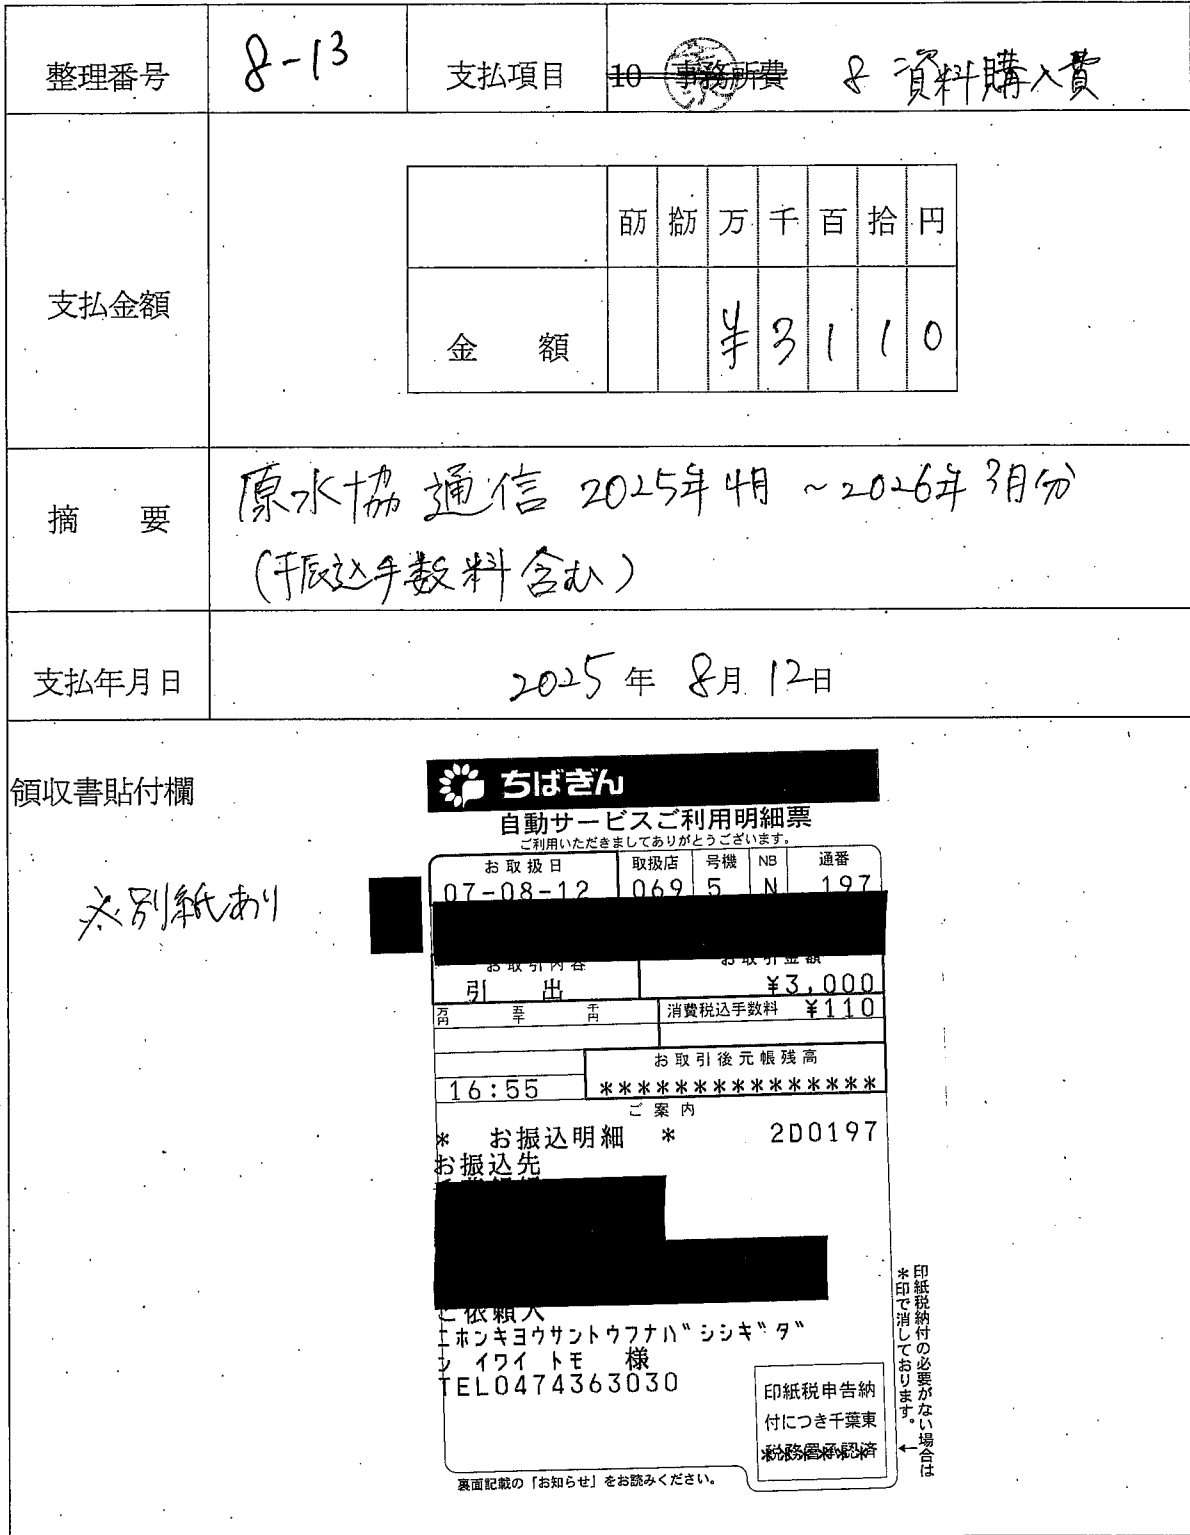 整理番号 8-13 支払項目 10 事務所費 8 資料購入費
百万 拾万 万 千 百 拾 円
支払金額
金 額 ¥3110
摘 要
原水協通信 2025年4月～2026年3月分
(振込手数料含む)
支払年月日 2025年 8月 12日
領収書貼付欄
※別紙あり
ちばぎん
自動サービスご利用明細票
ご利用いただきましてありがとうございます。
お取扱日 取扱店 号機 NB 通番
07-08-12 069 5 N 197
お取引内容 お取引金額
引 出 ¥3,000
万円 五千 千円 消費税込手数料 ¥110
お取引後元帳残高
16:55 ***************
ご案内
* お振込明細 * 2D0197
お振込先
ご依頼人
ニホンキヨウサントウフナバシシギダ
ン イワイ トモ 様
TEL0474363030
印紙税申告納
付につき千葉東
税務署承認済
裏面記載の「お知らせ」をお読みください。
印紙税納付の必要がない場合は
*印で消しております。
←